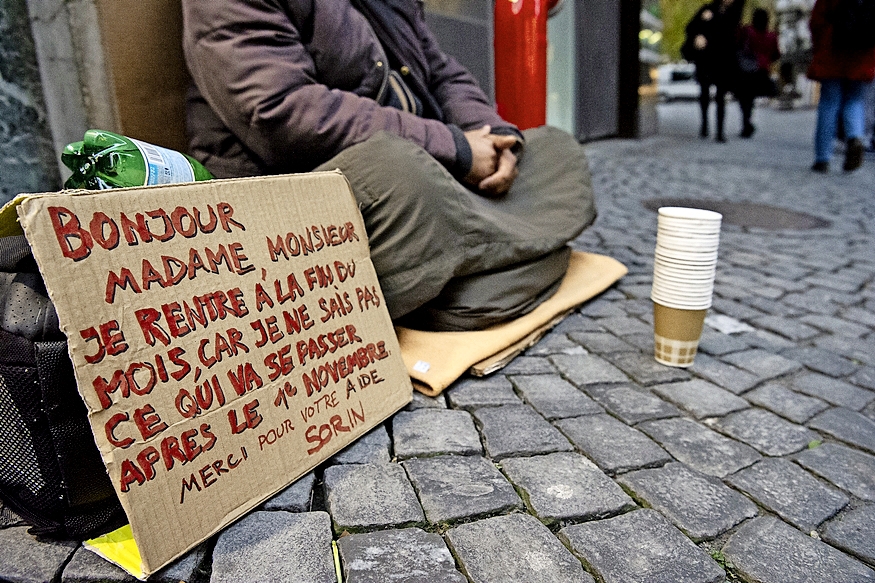 BONJOUR
MADAME, MONSIEUR
JE RENTRE À LA FIN DU
MOIS, CAR JE NE SAIS PAS
CE QU'IL VA SE PASSER
APRÈS LE 1e NOVEMBRE.
MERCI POUR VOTRE AIDE
SORIN